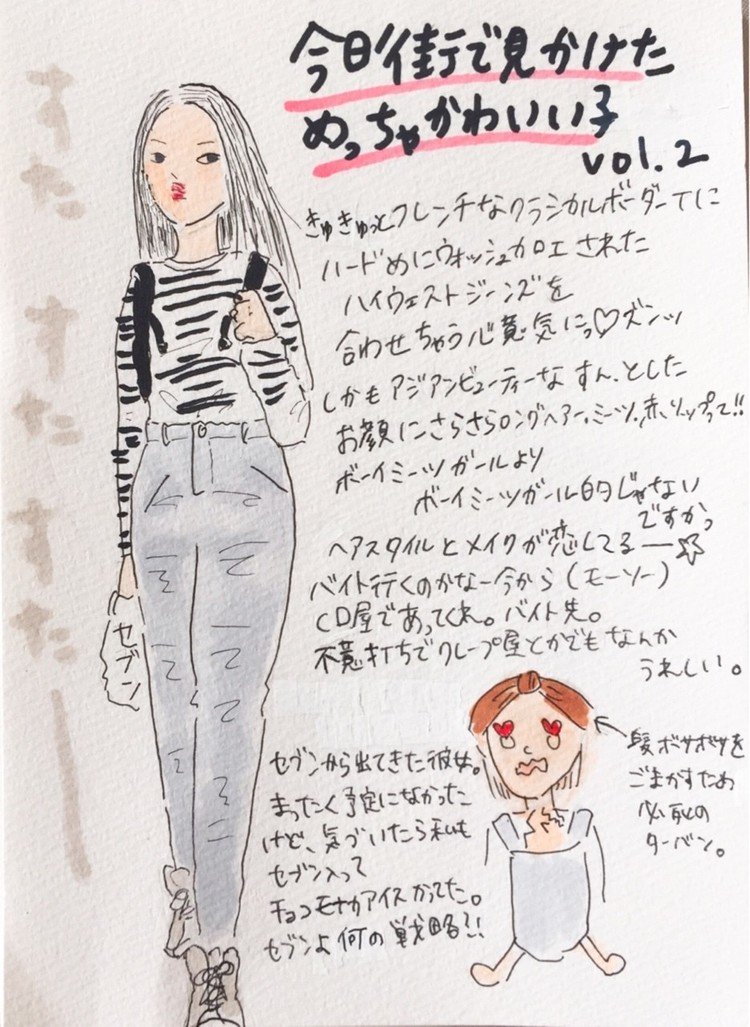 今日街で見かけた
めっちゃかわいい子
vol.2
すた すた すたー
きゅきゅっとフレンチなクラシカルボーダーTに
ハードめにウォッシュカロエされた
ハイウェストジーンズを
合わせちゃう心意気にっ♡ズンッ
しかもアジアンビューティーな すん、とした
お顔にさらさらロングヘアー、ミーツ、赤リップって!!
ボーイミーツガールより
ボーイミーツガール的じゃない
ですかっ
ヘアスタイルとメイクが恋してるー☆
バイト行くのかなー今から(モーソー)
CD屋であってくれ。バイト先。
不意打ちでクレープ屋とかでもなんか
うれしい。
セブン
セブンから出てきた彼女。
まったく予定になかった
けど、気づいたら私も
セブン入って
チョコモナカアイスかってた。
セブンよ何の戦略?!!
髪ボサボサを
ごまかすため
必死の
ターバン。